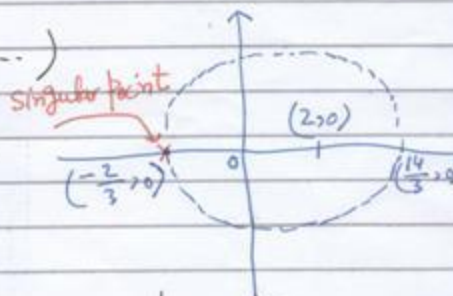 ...)
singular point
(2,0)
0
(-2/3,0)
(14/3,0